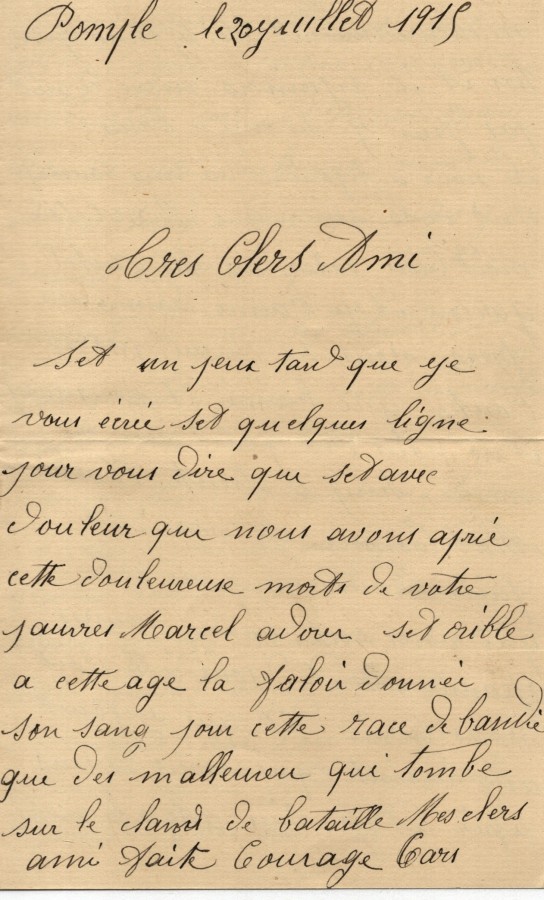 Pomple le 20 juillet 1915
Tres Chers Ami
Set un peux tard que je
vous écrie set quelques ligne
pour vous dire que set avec
douleur que nous avons aprié
cette douleureuse morts de votre
pauvres Marcel adorer set orible
a cette age la faloir donnéi
son sang pour cette race de bandie
que des malleureu qui tombe
sur le chans de bataille Mes chers
ami faite Courage Cars